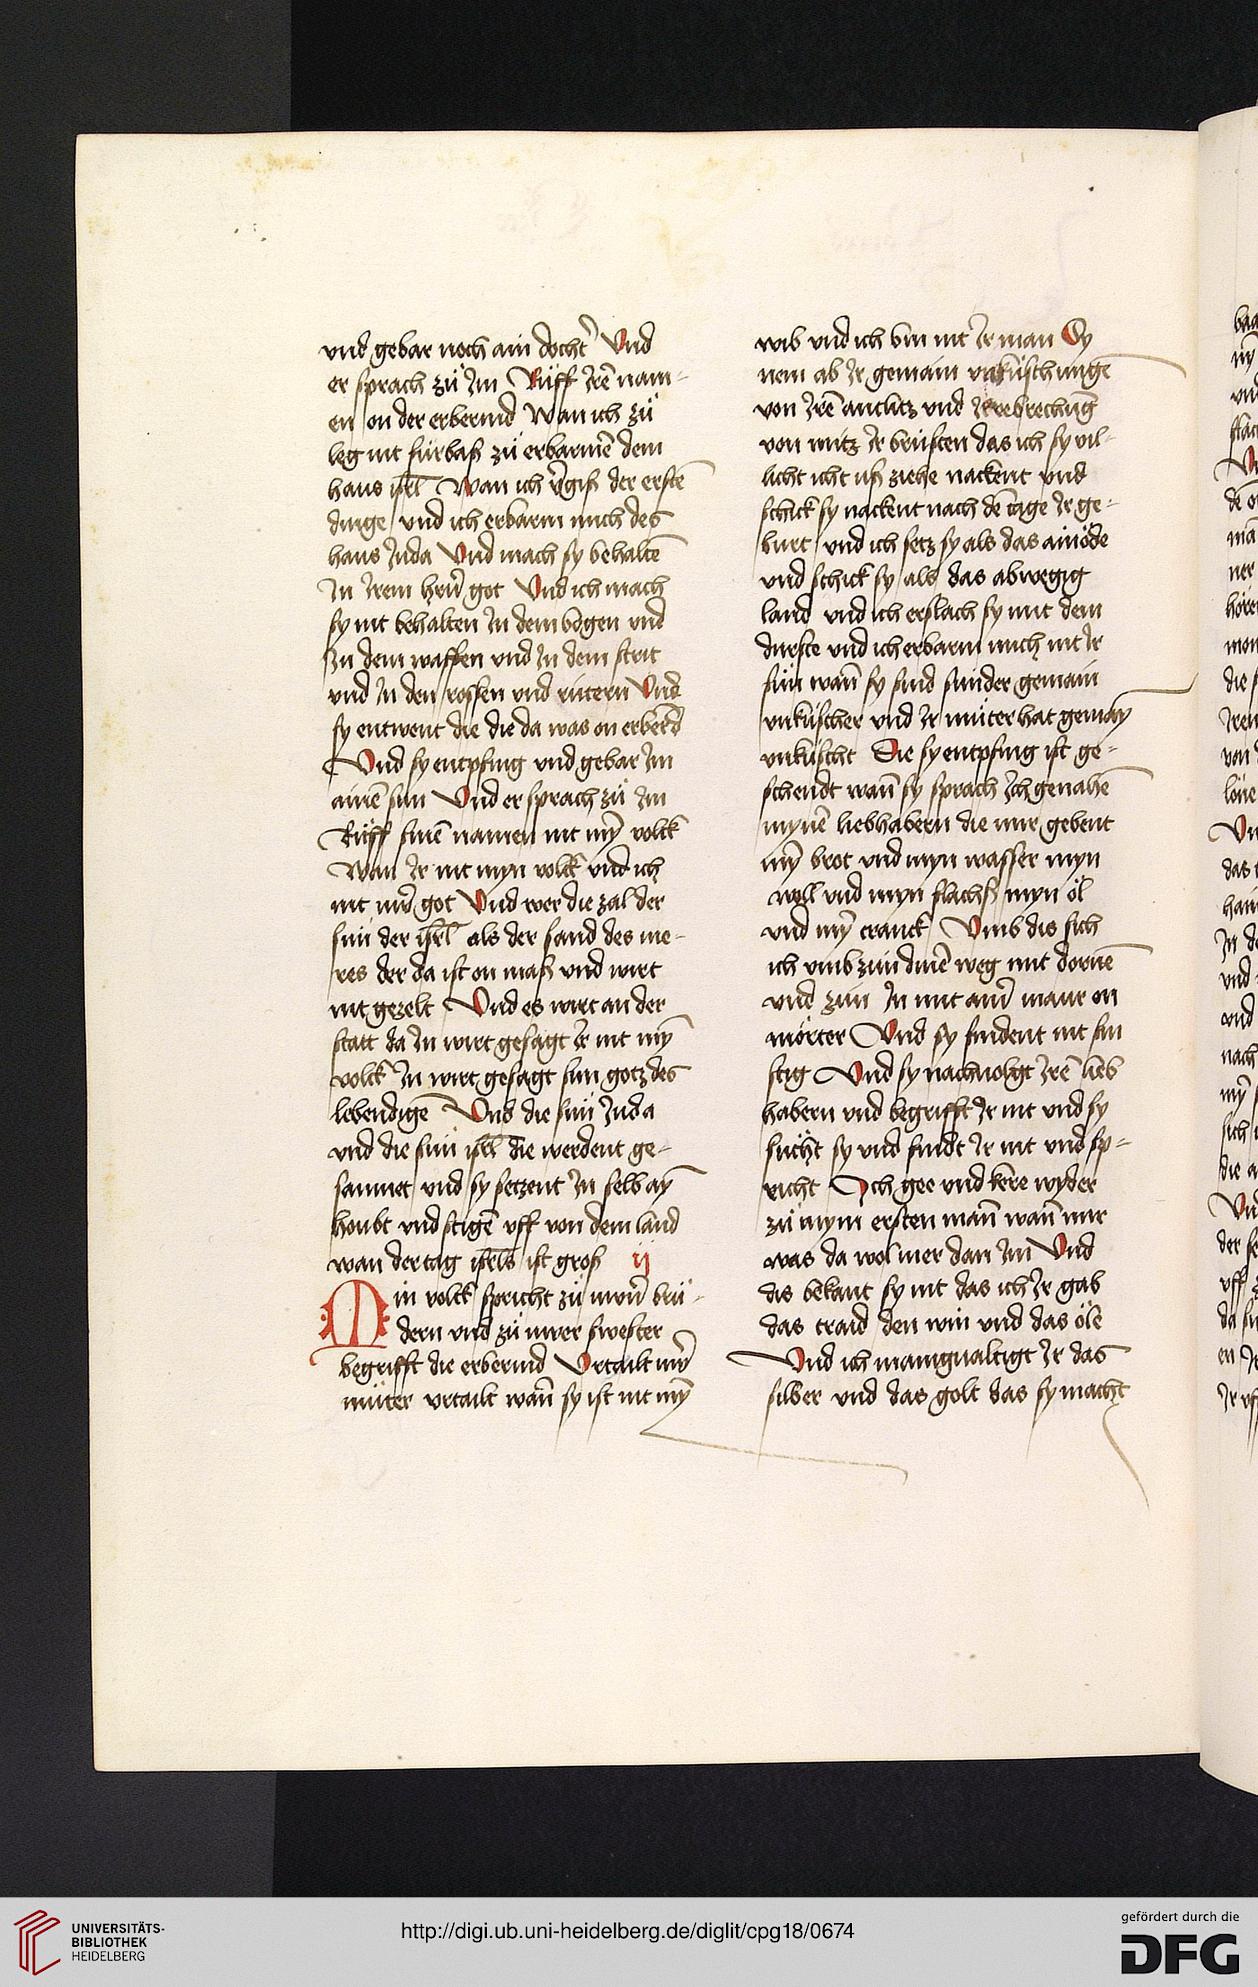 vnd gebar noch ain docht̉ Vnd
er sprach zů Jm Růff Jrē nam-
en on der erbermd Wan ich zů
leg nit fürbaß zů erbarmē dem
haus isrl̄ Wan ich v̉giß der erstē
dinge vnd ich erbarm mich des
haus Juda Vnd mach sy behaltē
Jn Jrem herr̄ got Vnd ich mach
sy nit behalten Jn dem bogen vnd
Jn dem waffen vnd Jn dem strit
vnd Jn den rossen vnd rittern Vnd
sy entwent die die da was on erbermd
Vnd sy entpfing vnd gebar Jm
ainē sun Vnd er sprach zů Jm
Růff sinē namen nit mȳ volck
Wan Jr nit myn volck vnd ich
nit uwer̉ got Vnd wer die zal der
sün der isrl̄ als der sand des me-
res der da ist on maß vnd wirt
nit gezelt Vnd es wirt an der
statt da Jn wirt gesagt Jr nit mȳ
volck Jn wirt gesagt sün gotz des
lebendigē Vnd die sün Juda
vnd die sün isrl̄ die werdent ge-
samnet vnd sy setzent Jn selb aȳ
houbt vnd stigē vff von dem land
wan der tag isrl̄s ist groß ij
Min volck spricht zů uwern̄ brü-
dern vnd zů uwer swester
begrifft die erbermd Vrtailt uwer̉
můter vrtailt wan̄ sy ist nit mȳ
wib vnd ich bin nit Jr man Sy
nem ab Jr gemain vnküschunge
von Jrē antlitz vnd Jr eebrechūg
von mitz Jr brüsten das ich sy vil-
licht icht uß ziehe nackent vnd
schick sy nackent nach dē tage Jr ge-
burt vnd ich setz sy als das ainöde
vnd schick sy als das abwegig
land vnd ich erslach sy mit dem
durste vnd ich erbarm mich nit Jr
sün wan̄ sy sind sünder gemain
vnküscher vnd Jr můter hat gemay
vnküscht Die sy entpfing ist ge-
schendt wan̄ sy sprach Jch genahē
mynē liebhabern die mir gebent
mȳ brot vnd myn wasser myn
woll vnd myn flachß myn öl
vnd mȳ tranck Vmb dis sich
ich vmbzün dinē weg mit dornē
vnd zün Jn mit ainer̉ maur on
mörter Vnd sy findent nit sin
stig Vnd sy nachuolgt Jrē lieb
habern vnd begrifft Jr nit vnd sy
sücht sy vnd findt Jr nit vnd sp-
richt Jch gee vnd kere wyder
zů mym ersten man̄ wan̄ mir
was da wol mer dan̄ Jm Vnd
dis bekant sy nit das ich Jr gab
das traid den win vnd das öle
Vnd ich manigualtigt Jr das
silber vnd das golt das sy macht
UNIVERSITÄTS-
BIBLIOTHEK
HEIDELBERG
http://digi.ub.uni-heidelberg.de/diglit/cpg18/0674
gefördert durch die
DFG